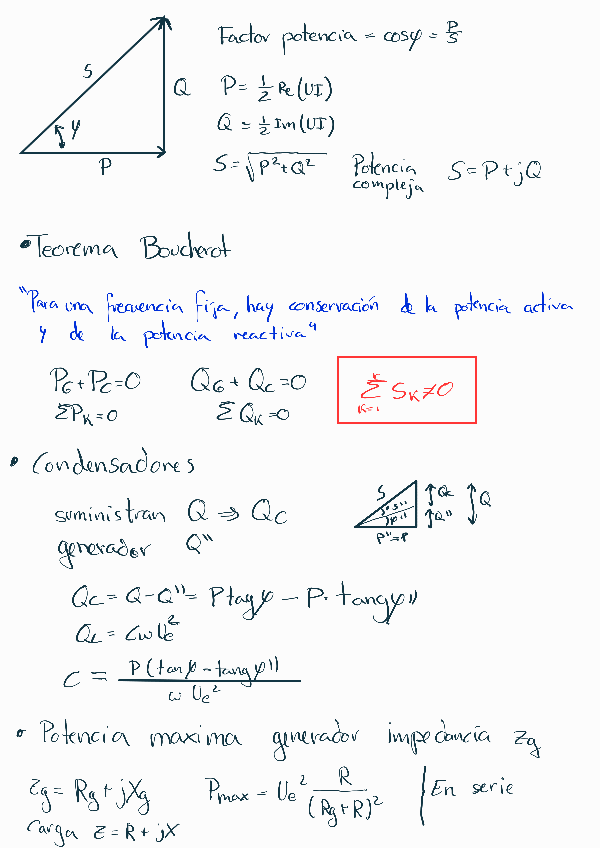 S
Q
φ
P
Factor potencia = cosφ = P/S
P = 1/2 Re(UI)
Q = 1/2 Im(UI)
S = √P²+Q² Potencia compleja S = P + jQ
• Teorema Boucherot
"Para una frecuencia fija, hay conservación de la potencia activa
y de la potencia reactiva"
PG + PC = 0 QG + QC = 0
ΣPK = 0 ΣQK = 0
Σ K=1 K SK ≠ 0
• Condensadores
suministran Q ⇒ QC
generador Q''
S
φ''
QC
Q''
Q
P''=P
QC = Q - Q'' = Ptagφ - P· tangφ''
QC = CωUe²
C = P(tanφ - tangφ'') / ω Ue²
• Potencia maxima generador impedancia Zg
Zg = Rg + jXg Pmax = Ue² R / (Rg+R)² | En serie
Carga Z = R + jX